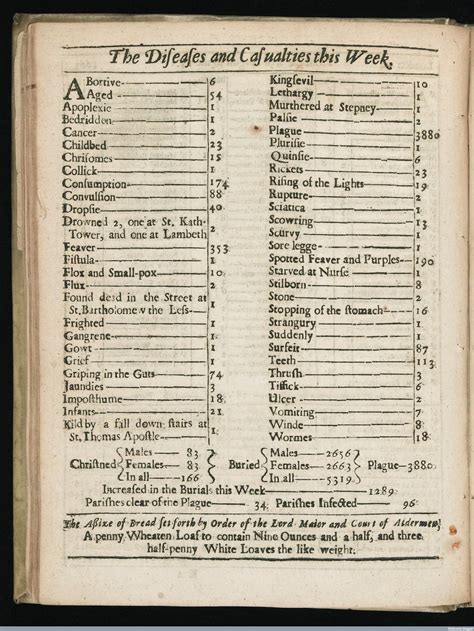 The Diseases and Casualties this Week.
Abortive 6
Aged 54
Apoplexie 1
Bedridden 1
Cancer 2
Childbed 23
Chrisomes 15
Collick 1
Consumption 174
Convulsion 88
Dropsie 40
Drowned 2, one at St. Kath-
Tower, and one at Lambeth 2
Feaver 353
Fistula 1
Flox and Small-pox 10
Flux 2
Found dead in the Street at
St. Bartholomew the Less 1
Frighted 1
Gangrene 1
Gowt 1
Grief 1
Griping in the Guts 74
Jaundies 3
Imposthume 18
Infants 21
Kild by a fall down stairs at
St. Thomas Apostle 1
Kingsevil 10
Lethargy 1
Murthered at Stepney 1
Palsie 2
Plague 3880
Plurisie 1
Quinsie 6
Rickets 23
Rising of the Lights 19
Rupture 2
Sciatica 1
Scowring 13
Scurvy 1
Sore legge 1
Spotted Feaver and Purples 190
Starved at Nurse 1
Stilborn 8
Stone 2
Stopping of the stomach 16
Strangury 1
Suddenly 1
Surfeit 87
Teeth 113
Thrush 3
Tissick 6
Ulcer 2
Vomiting 7
Winde 8
Wormes 18
Christned { Males 83 Females 83 In all 166 } Buried { Males 2656 Females 2663 In all 5319 } Plague 3880
Increased in the Burials this Week 1289
Parishes clear of the Plague 34 Parishes Infected 96
The Assize of Bread set forth by Order of the Lord Maior and Court of Aldermen,
A penny Wheaten Loaf to contain Nine Ounces and a half, and three
half-penny White Loaves the like weight.